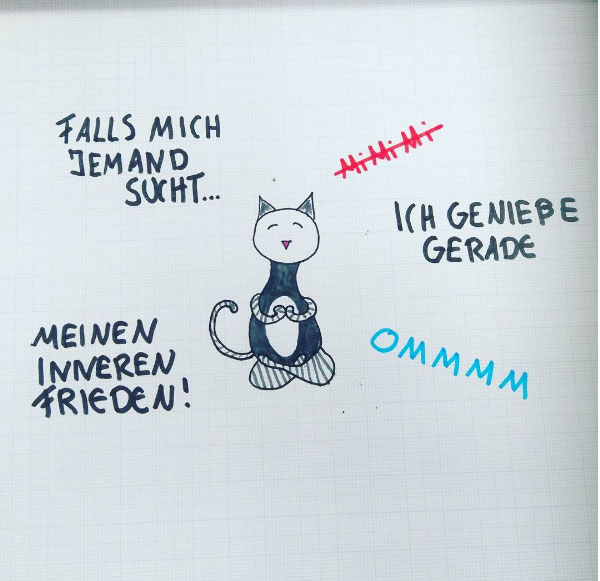 FALLS MICH
JEMAND
SUCHT...
MiMiMi
ICH GENIEßE
GERADE
MEINEN
INNEREN
FRIEDEN!
OMMMM